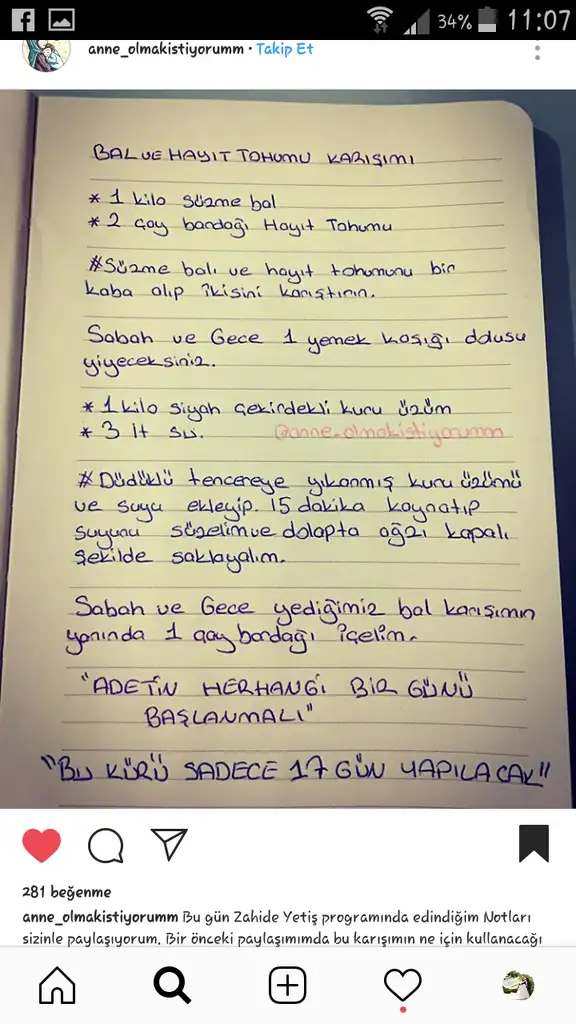 34% 11:07
anne_olmakistiyorumm • Takip Et
BAL VE HAYIT TOHUMU KARIŞIMI
* 1 kilo süzme bal
* 2 çay bardağı Hayıt Tohumu
#Süzme balı ve hayıt tohumunu bir
kaba alıp ikisini karıştırın.
Sabah ve Gece 1 yemek kaşığı ddusu
yiyeceksiniz.
* 1 kilo siyah çekirdekli kuru üzüm
* 3 lt su.
@anne_olmakistiyorumm
# Düdüklü tencereye yıkanmış kuru üzümü
ve suyu ekleyip. 15 dakika kaynatıp
suyunu süzelim ve dolapta ağzı kapalı
şekilde saklayalım.
Sabah ve Gece yediğimiz bal karışımın
yanında 1 çay bardağı içelim.
"ADETİN HERHANGİ BİR GÜNÜ
BAŞLANMALI"
"BU KÜRÜ SADECE 17 GÜN YAPILACAK"
281 beğenme
anne_olmakistiyorumm Bu gün Zahide Yetiş programında edindiğim Notları
sizinle paylaşıyorum. Bir önceki paylaşımımda bu karışımın ne için kullanacağı